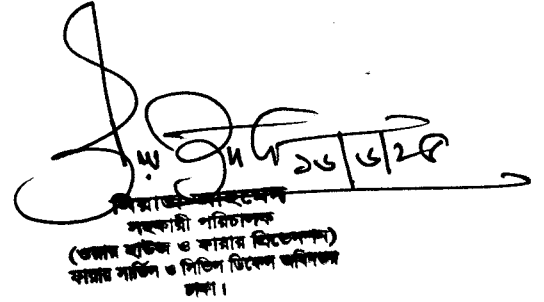 ১৬/৬/২৫
সহকারী পরিচালক
(ওয়ার হাউজ ও ফায়ার প্রিভেনশন)
ফায়ার সার্ভিস ও সিভিল ডিফেন্স অধিদপ্তর
ঢাকা।